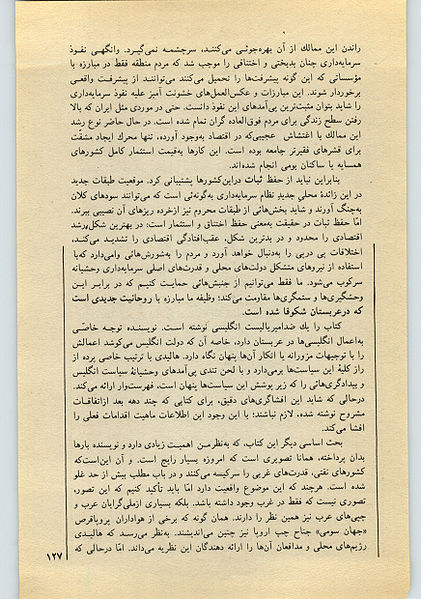 راندن این ممالك از آن بهره‌جوئی می‌کننـد، سرچشمـه نمی‌گیـرد. وانگهـی نفـوذ
سرمایه‌داری چنان بدبختی و اختناقی را موجب شد که مردم منطقه فقط در مبارزه با
مؤسساتی که این گونه پیشرفت‌ها را تحمیل می‌کنند می‌تواننـد از پیشرفـت واقعـی
برخوردار شوند. این مبارزات و عکس‌العمل‌های خشونت آمیز علیه نفوذ سرمایه‌داری
را شاید بتوان مثبت‌ترین پی‌آمدهای این نفوذ دانست. حتی در موردی مثل ایران که بالا
رفتن سطح زندگی برای مردم فوق‌العاده گران تمام شده است. در حال حاضر نوع رشد
این ممالك با اغتشاش عجیبی‌که در اقتصاد به‌وجود آورده، تنها محرك ایجاد مشقّت
برای قشرهای فقیرتر جامعه بوده است. این کارها به‌قیمت استثمار کامل کشورهای
همسایه یا ساکنان بومی انجام شده‌اند.
بنابراین نباید از حفظ ثبات دراین‌کشورها پشتیبانی کرد. موقعیت طبقات جدید
در این زائدهٔ محلی جدیدِ نظام سرمایه‌داری به‌گونه‌ئی است که می‌توانند سودهای کلان
به‌چنگ آورند و شاید بخش‌هائی از طبقات محروم نیز ازخرده ریزهای آن نصیبی ببرند.
امّا حفظ ثبات در حقیقت‌به‌معنی حفظ اختناق و استثمار است: در بهترین شکل‌رشد
اقتصادی را محدود و در بدترین شکل، عقب‌افتادگی اقتصادی را تشدیـد می‌کنـد،
اختلافات پی درپی را به‌دنبال خواهد آورد و مردم را به‌شورش‌هائی وامی‌دارد که‌با
استفاده از نیروهای متشکل دولت‌های محلی و قدرت‌های اصلی سرمایه‌داری وحشیانه
سرکوب می‌شود. ما فقط می‌توانیم از جنبش‌هائی حمایت کنیم که در برابـر ایـن
وحشیگری‌ها و ستمگری‌ها مقاومت می‌کند؛ وظیفه ما مبارزه با روحانیت جدیدی است
که درعربستان شکوفا شده است.
کتاب را یك ضدامپریالیست انگلیسی نوشته اسـت. نویسنـده توجـه خاصـی
به‌اعمال انگلیسی‌ها در عربستان دارد، خاصه آن که دولت انگلیس می‌کوشد اعمالش
را با توجیهات مزورانه یا انکار آن‌ها پنهان نگاه دارد. هالیدی با ترتیب خاصی پرده از
راز کلیهٔ این سیاست‌ها برمی‌دارد و با لحن تندی پی‌آمدهای وحشیانهٔ سیاست انگلیس
و بیدادگری‌هائی را که زیر پوشش این سیاست‌ها پنهان است، فهرست‌وار ارائه می‌کند.
درحالی که شاید این افشاگری‌های دقیق، برای کتابی که چند دهه بعد ازاتفاقـات
مشروح نوشته شده، لازم نباشند؛ با این وجود این اطلاعات ماهیت اقدامات فعلی را
افشا می‌کند.
بحث اساسی دیگر این کتاب، که به‌نظرمن اهمیت زیادی دارد و نویسنده بارها
بدان پرداخته، همانا تصویری است که امروزه بسیار رایج است. و آن این‌است‌که
کشورهای نفتی، قدرت‌های غربی را سرکیسه می‌کنند و در باب مطلب بیش از حد غلو
شده است. هرچند که این موضوع واقعیت دارد امّا باید تأکید کنیم که این تصور،
تصوری نیست که فقط در غرب وجود داشته باشد. بلکه بسیاری ازملی‌گرایان عرب و
چپی‌های عرب نیز همین نظر را دارند. همان گونه که برخی از هواداران پروپاقرص
«جهان سومی» جناح چپ اروپا نیز چنین می‌اندیشند. به‌نظر می‌رسـد که هالیـدی
رژیم‌های محلی و مدافعان آن‌ها را ارائه دهندگان این نظریه می‌داند. امّا درحالی که
۱۲۷